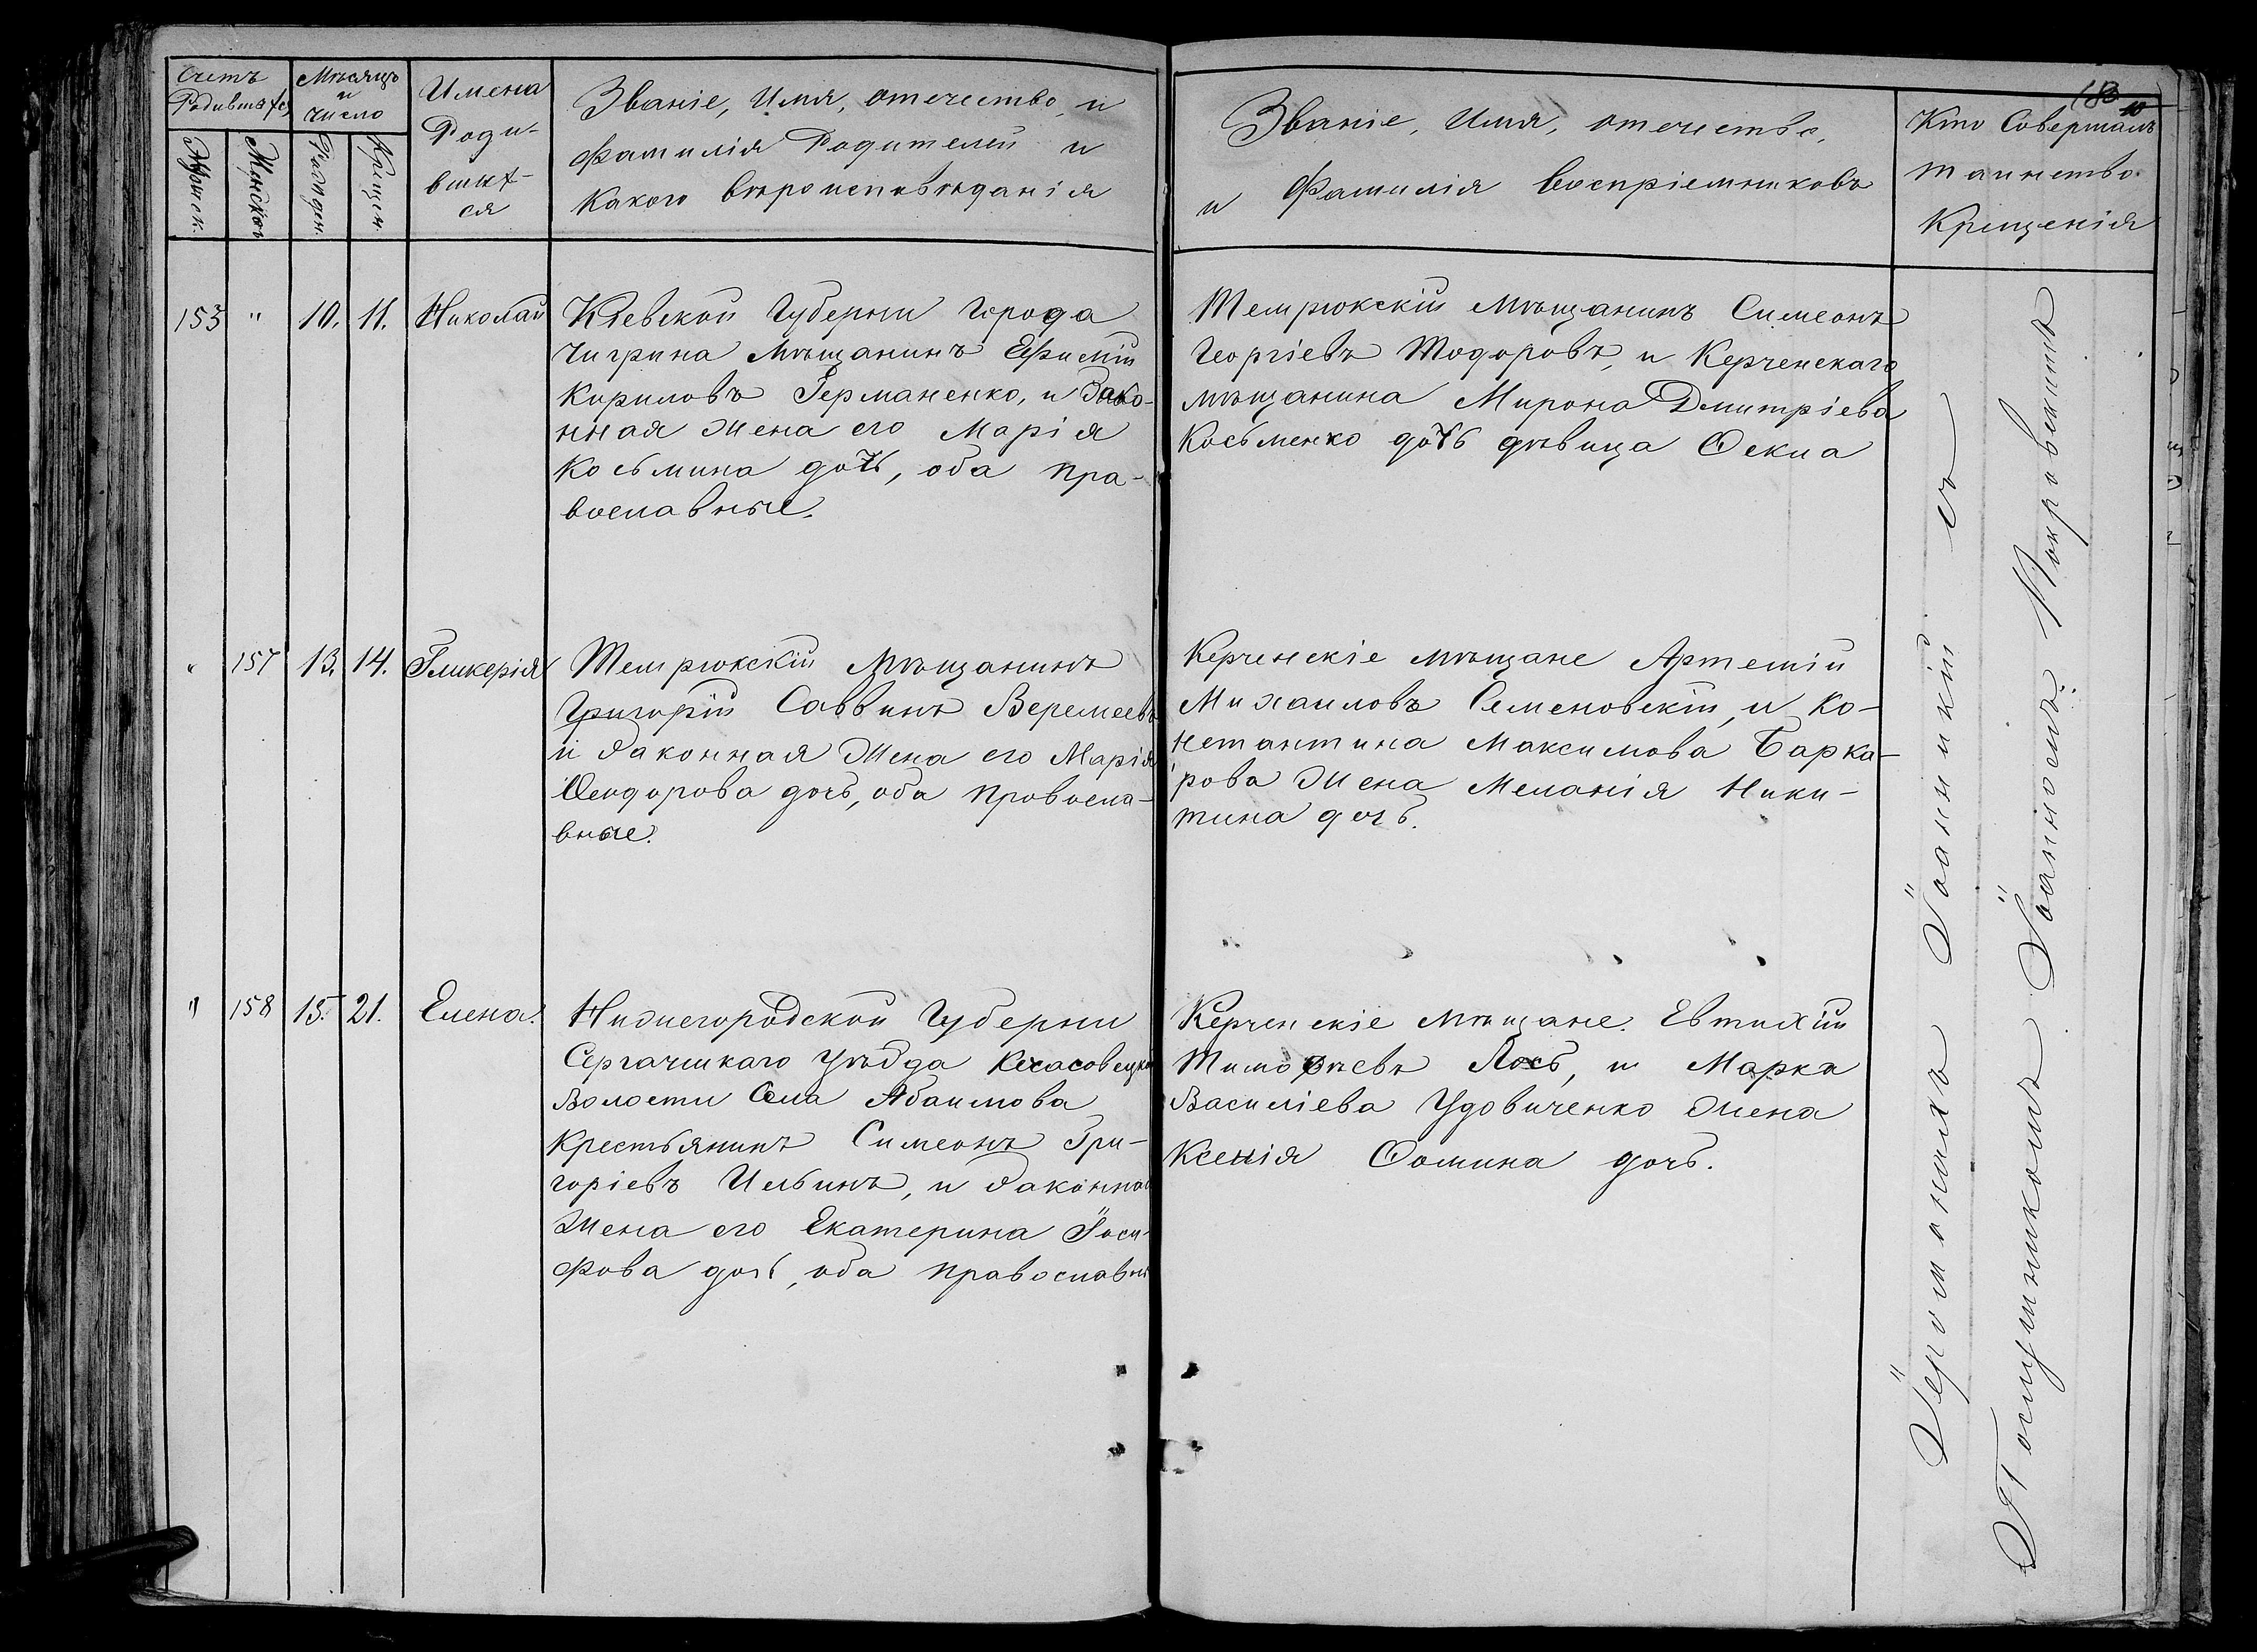 Счетъ
Родившихся
Мѣсяцъ
и
число
Мужеск.
Женскаго
Рожден.
Крещен.
Имена
Роди-
вших-
ся
Званіе, Имя, отечество, и
фамилія Родителей и
какого вѣроисповѣданія
Званіе, Имя, отечество,
и Фамилія Воспріемниковъ
180
10
Кто Совершалъ
таинство
Крещенія
153 " 10. 11. Николай
Кіевской Губерніи Города
Чигрина Мѣщанинъ Ефимій
Кириловъ Германенко, и Зако-
нная жена его Марія
Косьмина дочь, оба пра-
вославные.
Темрюкскій Мѣщанинъ Симеонъ
Георгіевъ Тодоровъ, и Керченскаго
мѣщанина Мирона Дмитріева
Косьменко дочь дѣвица Ѳекла
" 157 13. 14. Гликерія
Темрюкскій Мѣщанинъ
Григорій Саввинъ Веремеевъ
и Законная Жена его Марія
Ѳеодорова дочь, оба провосла-
вные.
Керченскіе мѣщане Артемій
Михаиловъ Семеновскій, и Ко-
нстантина Максимова Барка-
рова Жена Меланія Ники-
тина дочь.
" 158 15. 21. Елена.
Нижегородской Губерніи
Сергачшкаго Уѣзда
Волости Села Абаимова
Крестьянинъ Симеонъ Гри-
горіевъ Ильинъ, и Законная
Жена его Екатерина Іоси-
фова дочь, оба православны
Керченскіе Мѣщане. Евтихій
Тимоѳѣевъ Лохъ, и Марка
Василіева Удовиченко Жена
Ксенія Ѳомина дочь.
Іеромонахъ Іоанникій съ
Послушникомъ Іоанномъ Покровскимъ